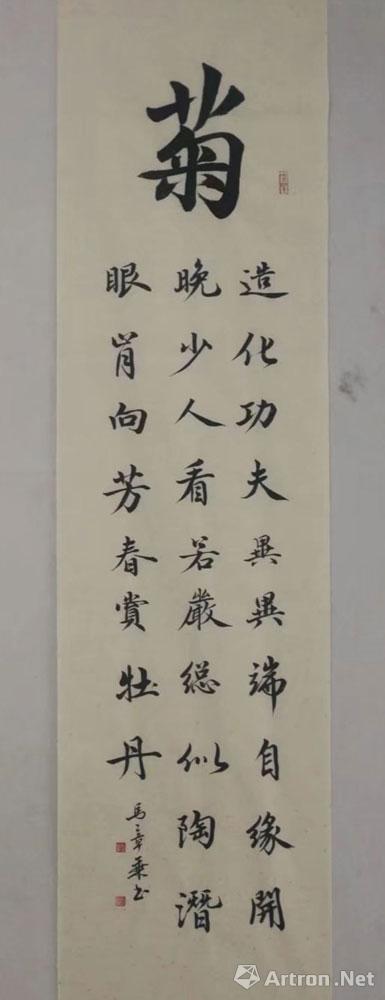 菊
造化功夫異異端自缘開
晚少人看若嚴總似陶潛
眼肯向芳春賞牡丹
馬章乗书
Artron.Net